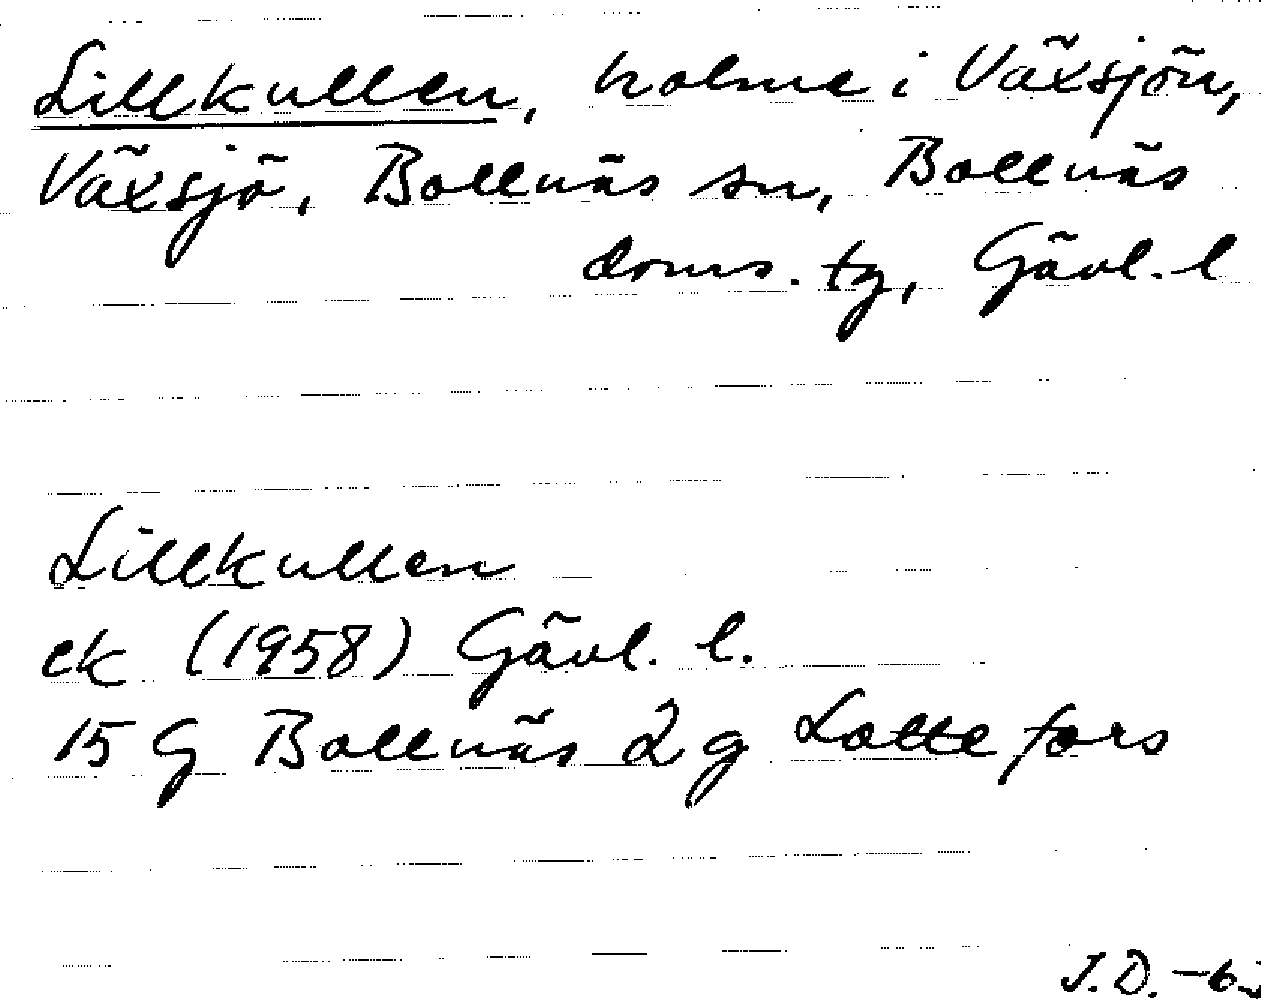 Lillkullen, holme i Växsjön,
Växsjö, Bollnäs sn, Bollnäs
doms. tg, Gävl. l
Lillkullen
ek (1958) Gävl. l.
15 G Bollnäs 2 g Lottefors
J.D. -6